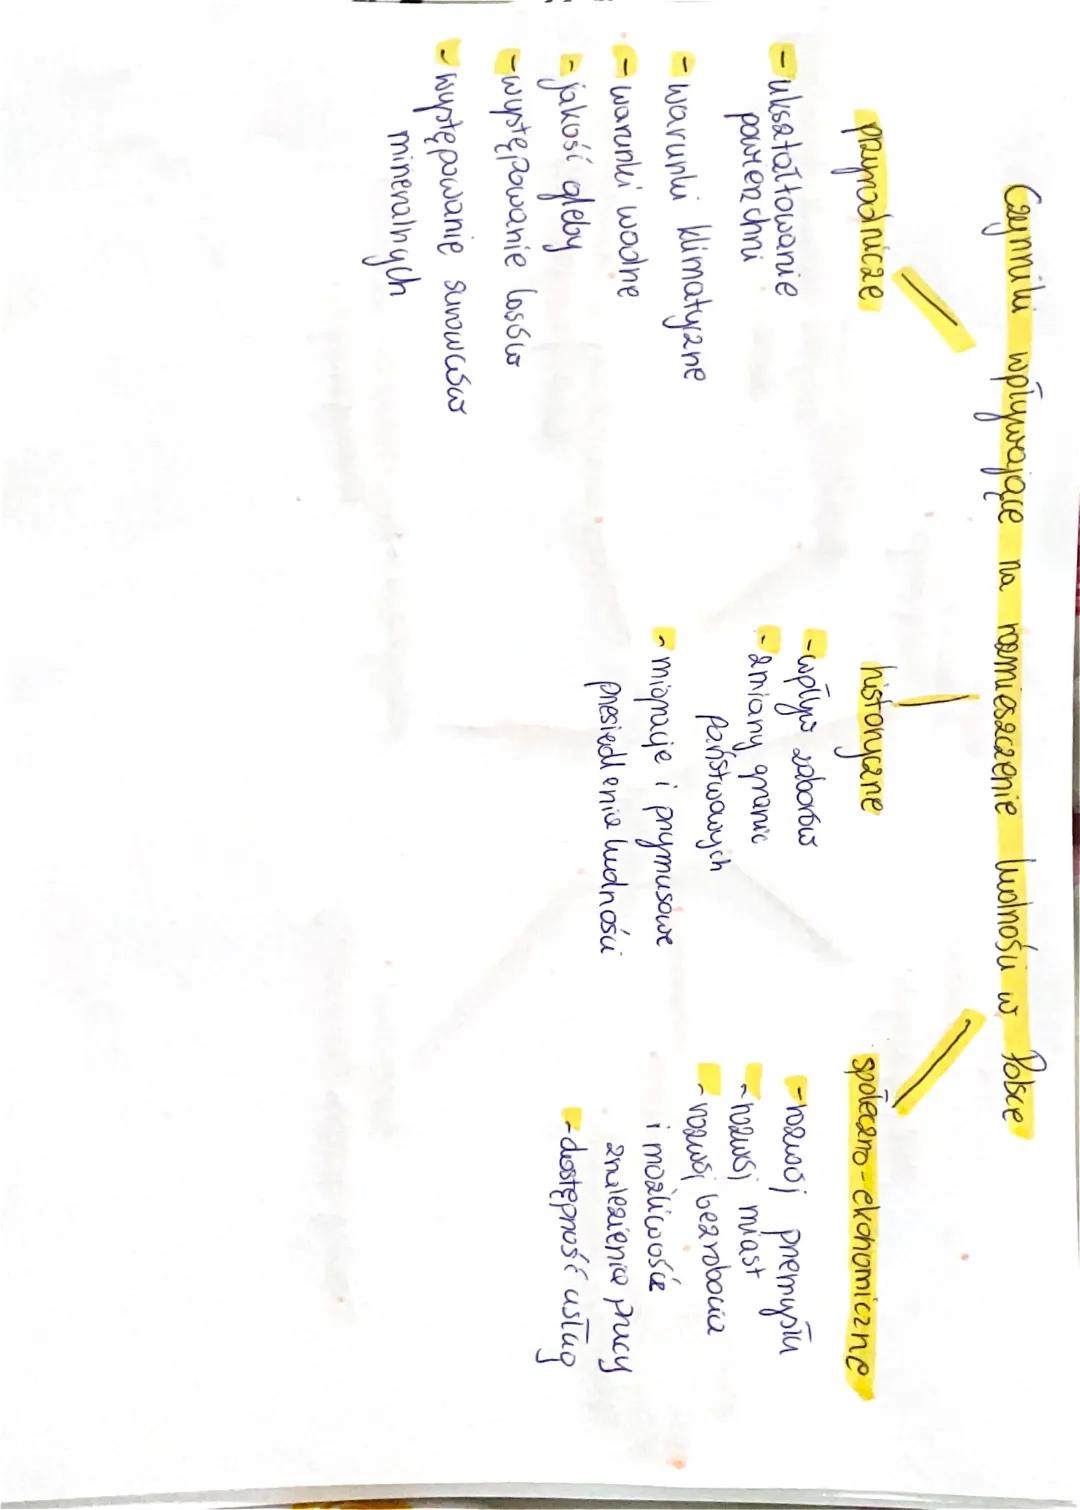 Czynniki wpływające na rozmieszczenie ludności w Polsce
przyrodnicze
- ukształtowanie
powierzchni
- warunki klimatyczne
- warunki wodne
- jakość gleby
- występowanie lasów
- występowanie surowców
mineralnych
historyczne
- wpływ zaborów
- zmiany granic
państwowych
- migracje i przymusowe
przesiedlenia ludności
społeczno-ekonomiczne
- rozwój przemysłu
- rozwój miast
- rozwój bezrobocia
i możliwoście
znalezienia pracy
- dostępność usług